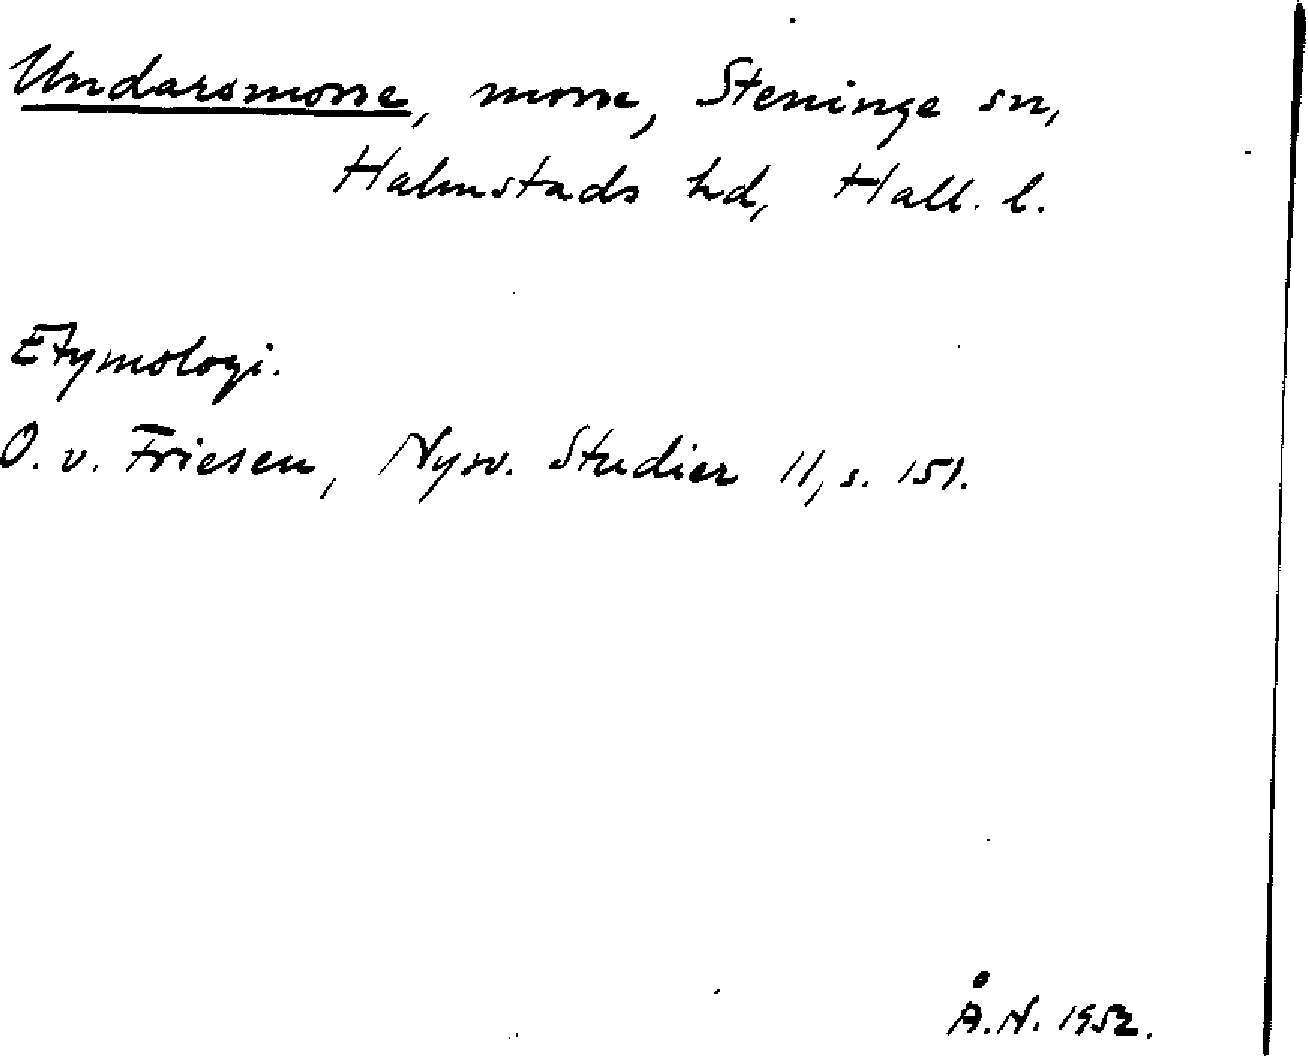 Undarsmosse, mosse, Steninge sn,
Halmstads hd, Hall. l.
Etymologi.
O. v. Friesen, Nysv. Studier 11, s. 151.
Å.N. 1952.